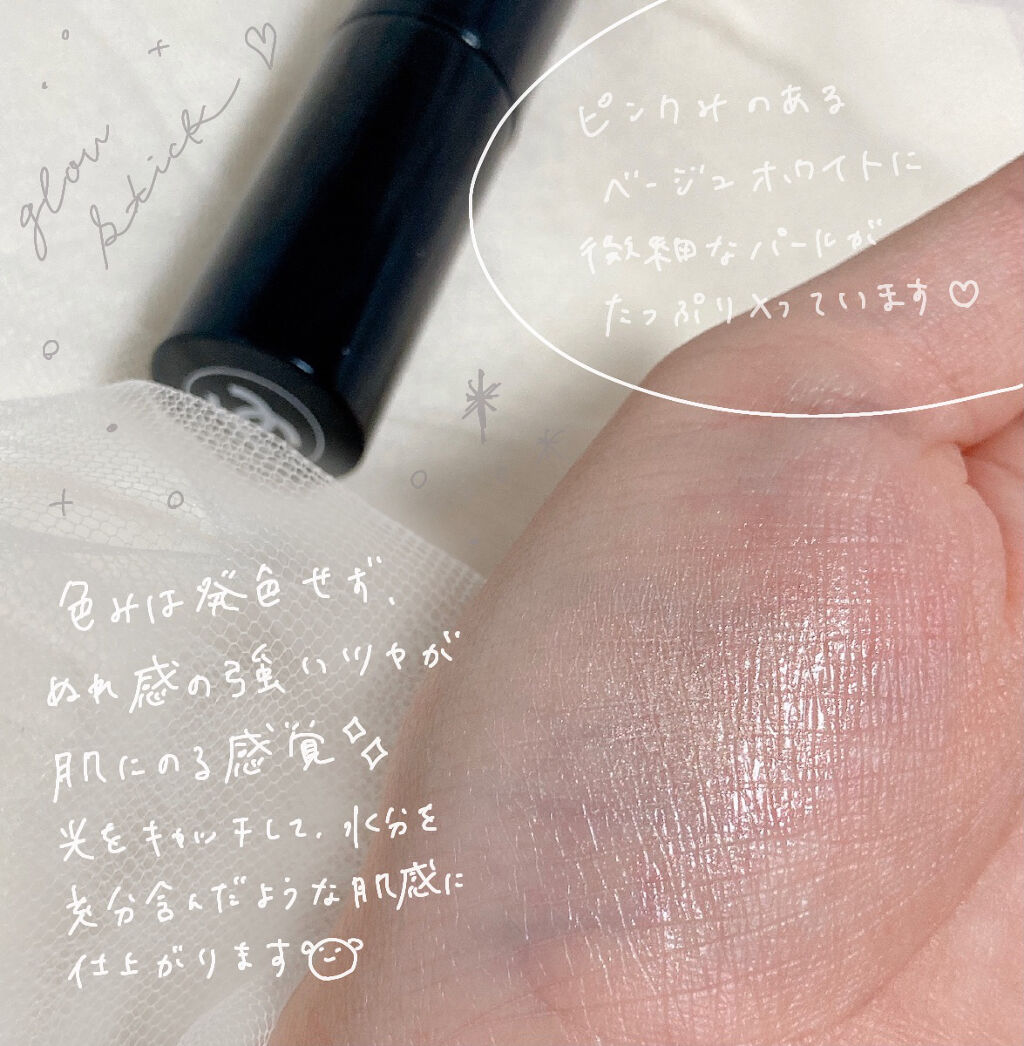 glow
stick
ピンクみのある
ベージュホワイトに
微細なパールが
たっぷり入っています♡
色みは発色せず、
ぬれ感の強いツヤが
肌にのる感覚
光をキャッチして、水分を
充分含んだような肌感に
仕上がります